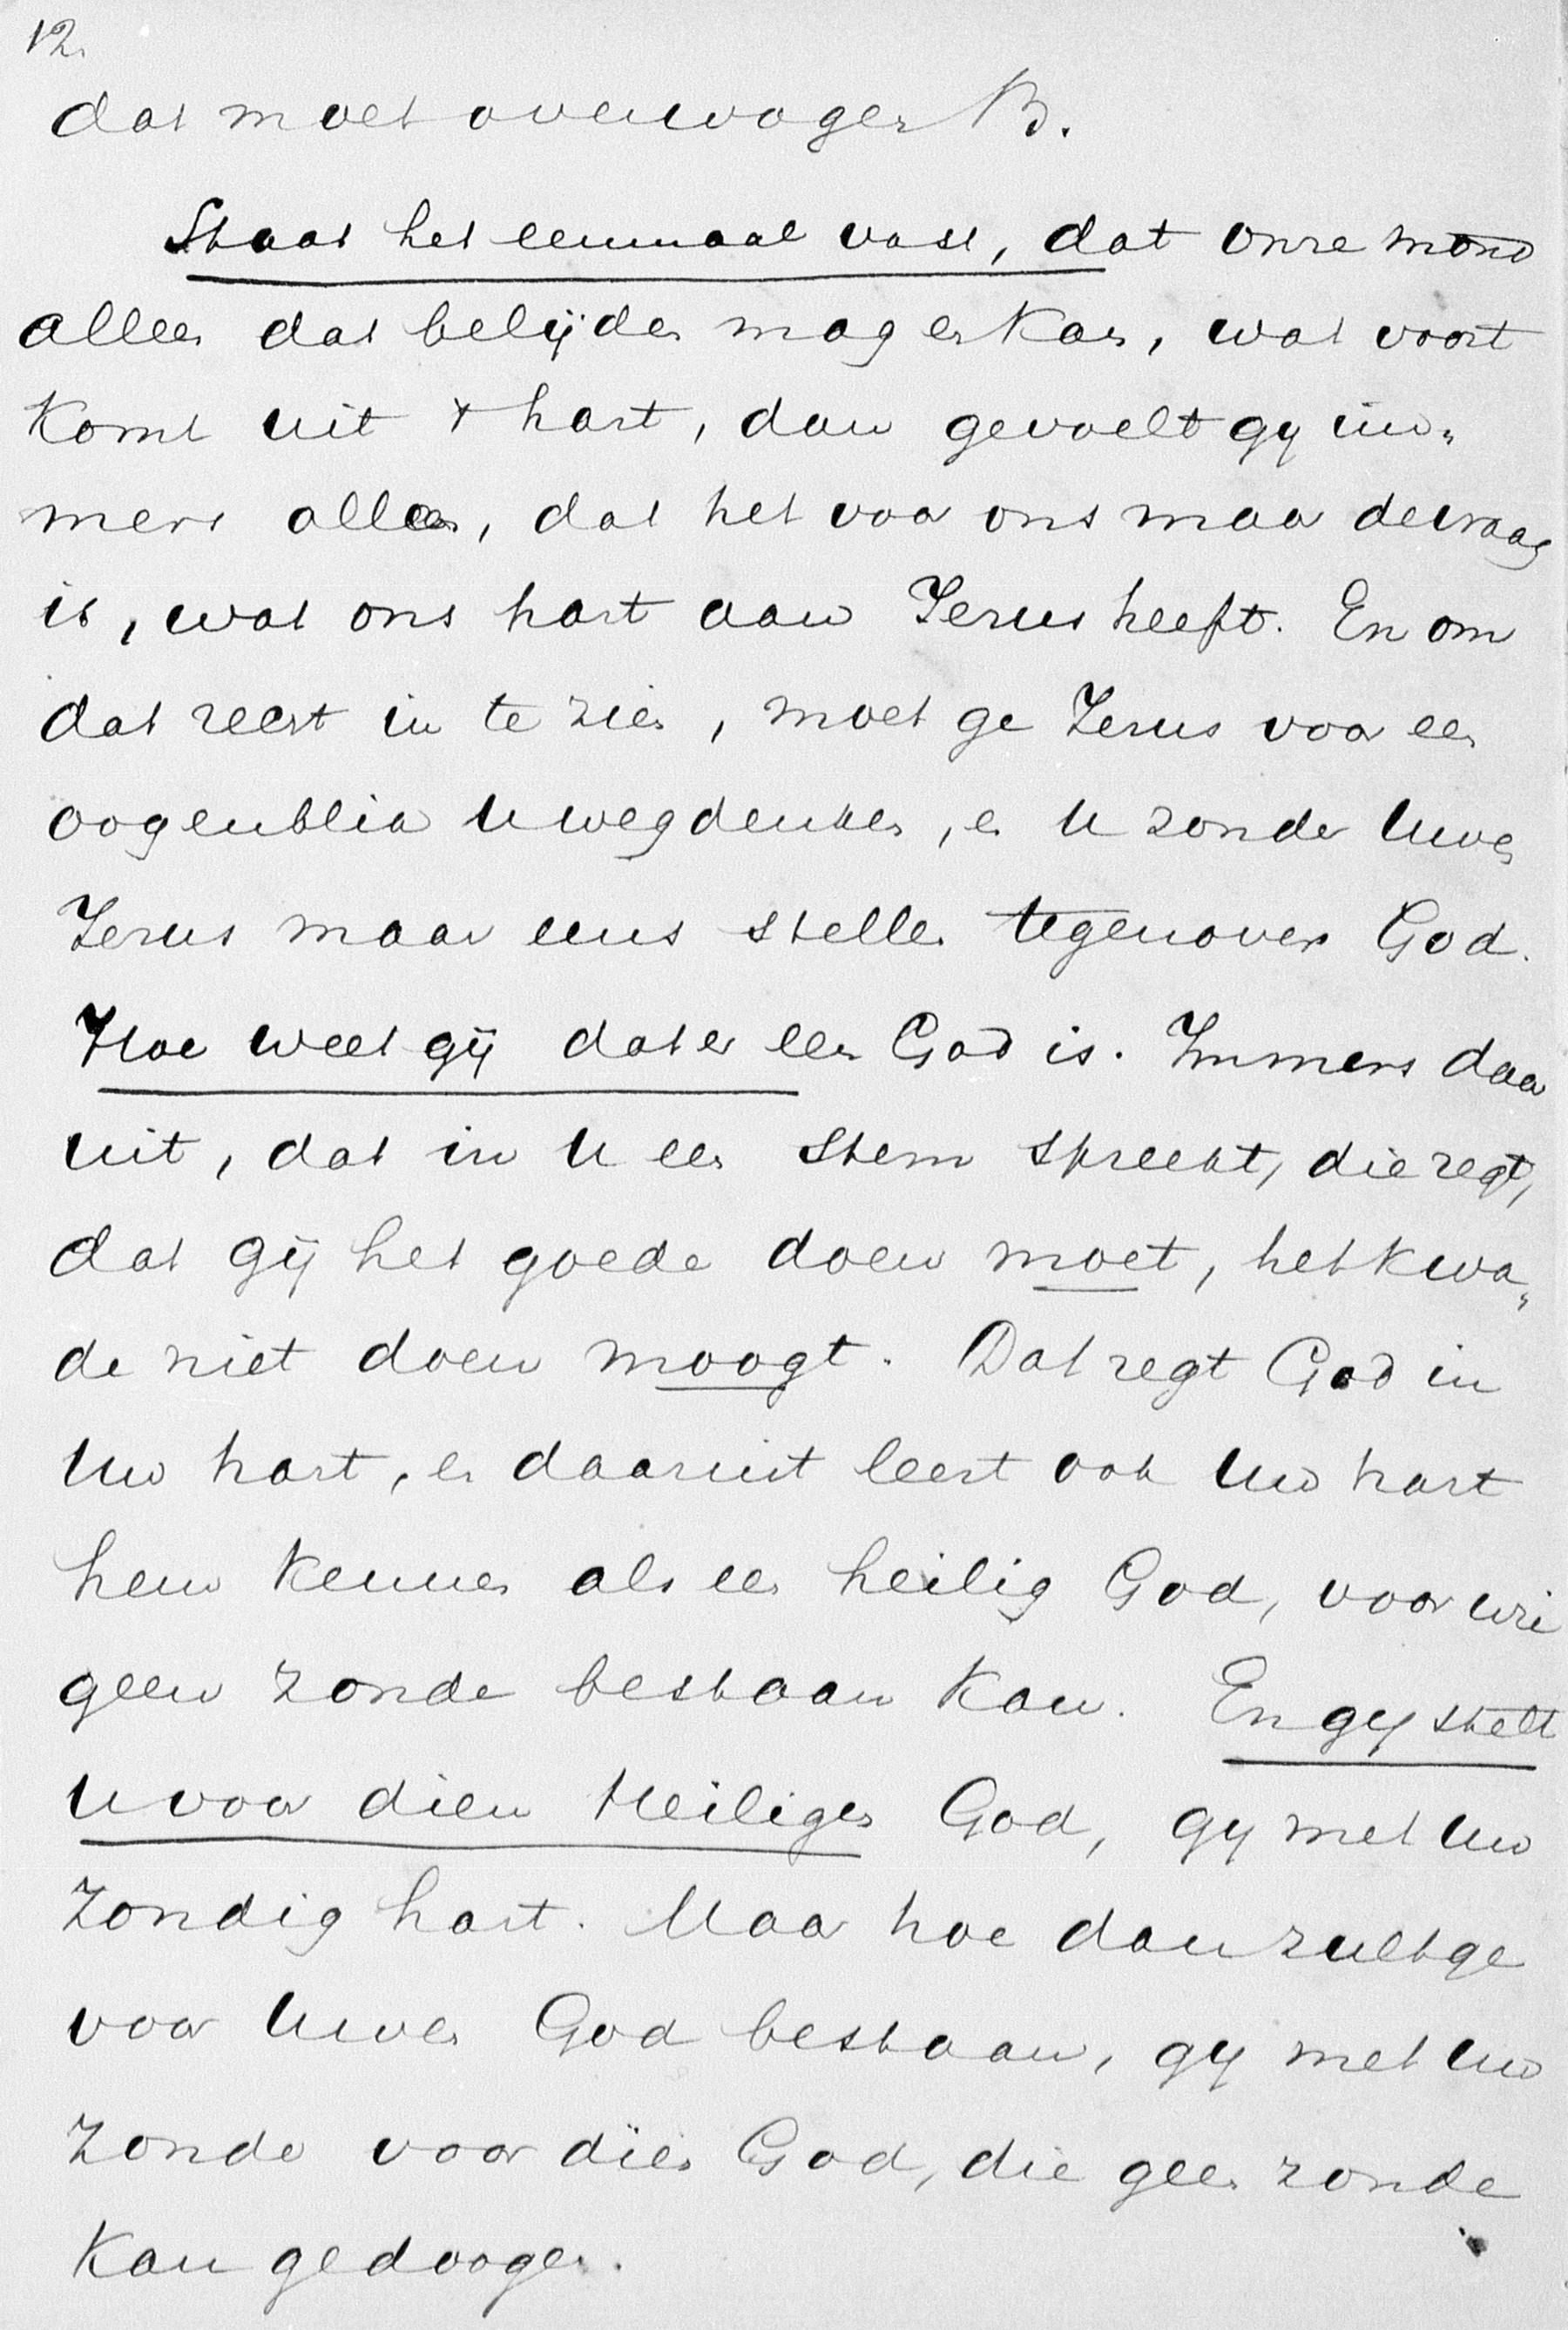 12.
dat moet overwogen B.
Staat het eenmaal vast, dat onze mond
alleen dat belijden mag en kan, wat voort
komt uit 't hart, dan gevoelt gij im„
mers allen, dat het voor ons maar de vraag
is, wat ons hart aan Jezus heeft. En om
dat recht in te zien, moet ge Jezus voor een
oogenblik U wegdenken, en U zonder Uwen
Jezus maar eens stellen tegenover God.
Hoe weet gij dat er een God is. Immers daar
uit, dat in U een stem spreekt, die zegt,
dat gij het goede doen moet, het kwa„
de niet doen moogt. Dat zegt God in
Uw hart, en daaruit leert ook Uw hart
hem kennen als een heilig God, voor wie
geen zonde bestaan kan. En gij stelt
U voor dien Heiligen God, gij met Uw
zondig hart. Maar hoe dan zult ge
voor Uwen God bestaan, gij met Uw
zonde voor dien God, die geen zonde
kan gedoogen.